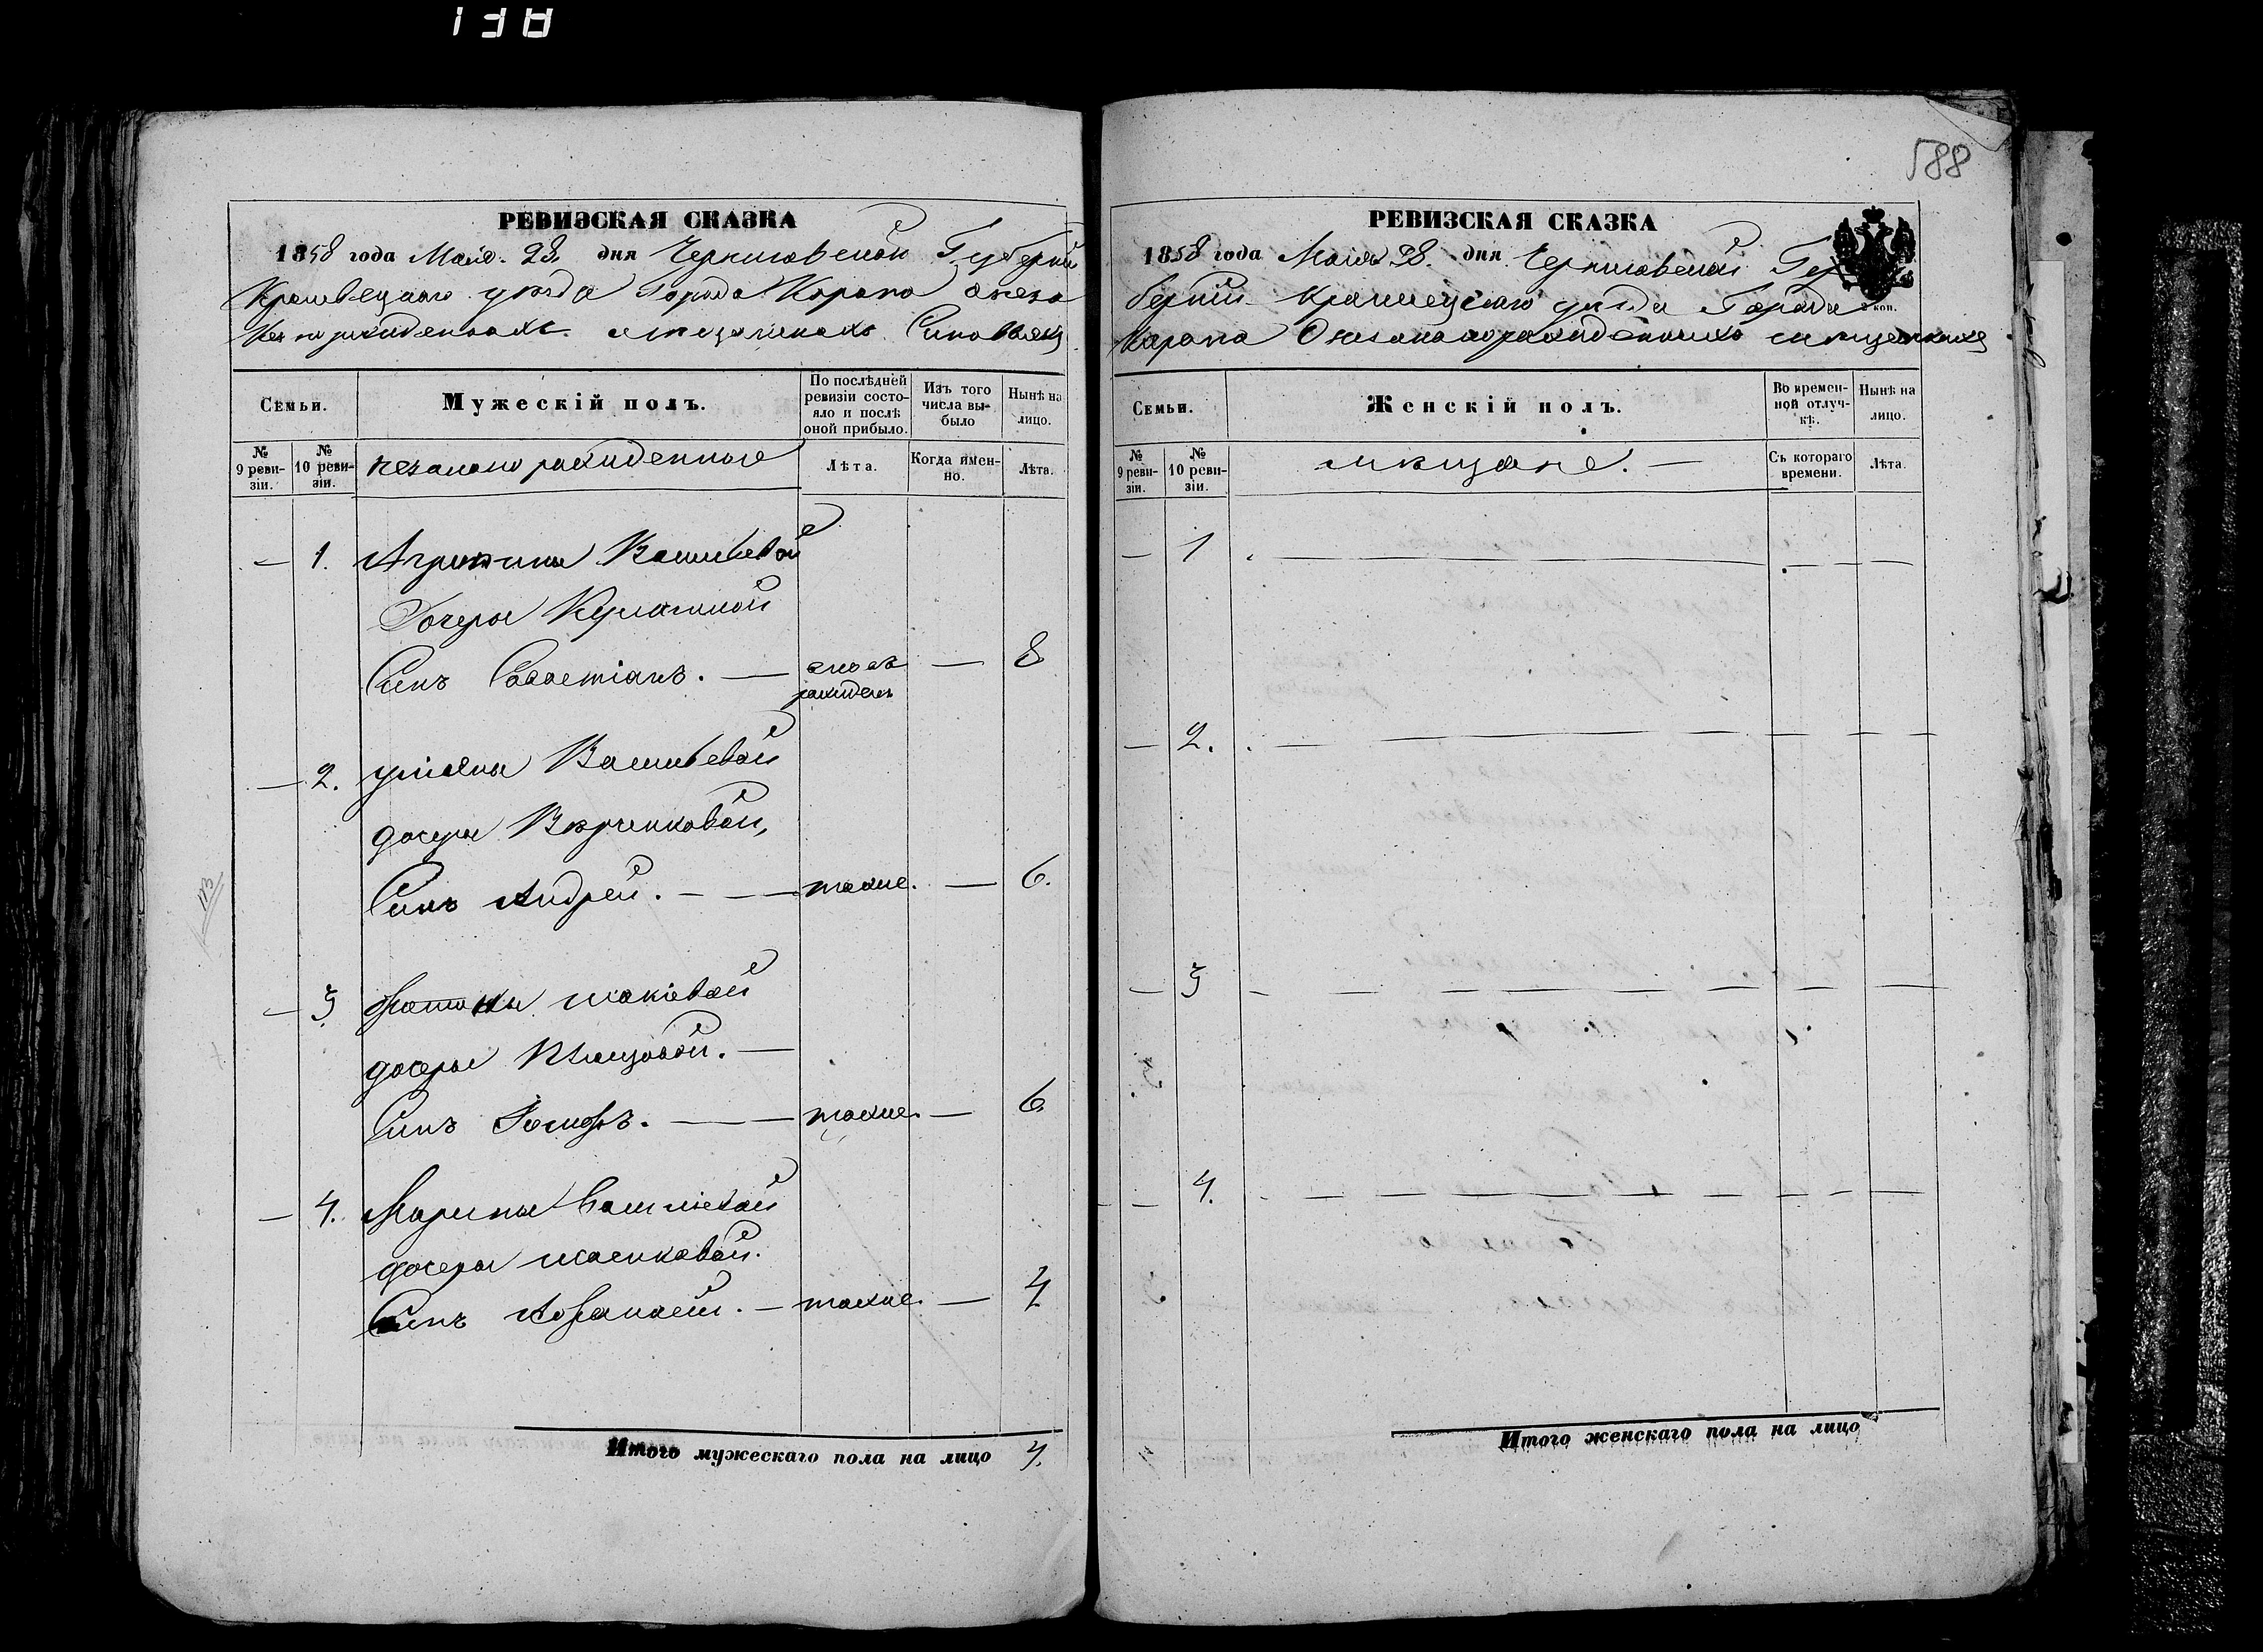 138
588
РЕВИЗСКАЯ СКАЗКА
1858 года Маія 28 дня Черниговской Губерніи
Кролевецкаго уѣзда Города Коропа онеза
коннорожденныхъ мѣщанахъ
Семьи.
Мужескій полъ.
По послѣдней ревизіи состояло и послѣ оной прибыло.
Изъ того числа выбыло
Нынѣ на лицо.
№ 9 ревизіи.
№ 10 ревизіи.
незаконнорожденные
Лѣта.
Когда именно.
Лѣта.
— 1. Агрипины Васильевой
Дочеры
Сынъ Савастіанъ. — вновь рожденъ — 8
— 2. Уліяны Васильевой
дочеры
Сынъ Андрей. — — также. — 6.
— 3
дочеры
Сынъ Іосифъ. — — также. — 6.
— 4. Марины
дочеры
Сынъ Афанасій. — также — 4
Итого мужескаго пола на лицо 4.
РЕВИЗСКАЯ СКАЗКА
1858 года Маія 28. дня Черниговской Гу
берніи Кролевецкаго уѣзда Города
Коропа О незаконорожденныхъ мѣщанкахъ
коп.
Семьи.
Женскій полъ.
Во временной отлучкѣ.
Нынѣ на лицо.
№ 9 ревизіи.
№ 10 ревизіи.
мѣщане. —
Съ котораго времени.
Лѣта.
— 1
— 2.
— 3
— 4.
Итого женскаго пола на лицо